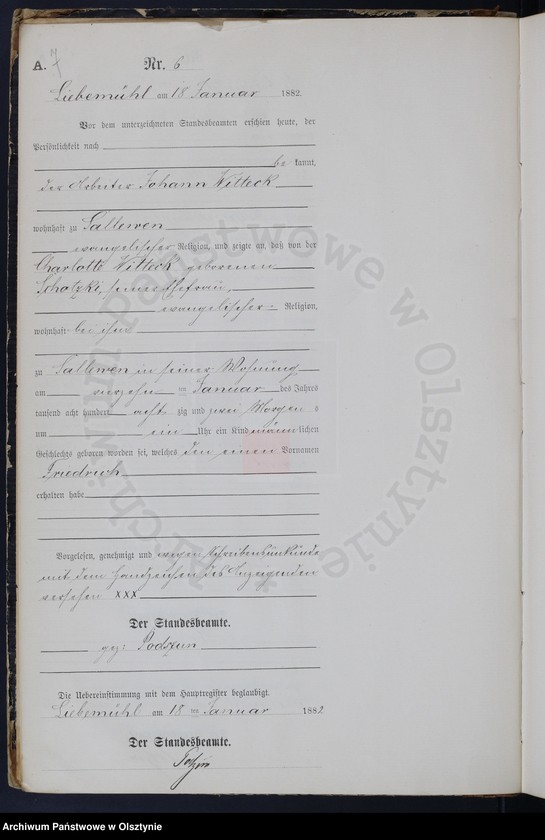 A. 7 Nr. 6
Liebemühl am 18 Januar 1882.
Vor dem unterzeichneten Standesbeamten erschien heute, der
Persönlichkeit nach
be kannt,
der Arbeiter Johann Witteck
wohnhaft zu Sallewen
evangelischer Religion, und zeigte an, daß von der
Charlotte Witteck geborenen
Schotzki, seiner Ehefrau,
evangelischer Religion,
wohnhaft bei ihm
zu Sallewen in seiner Wohnung
am vierzehn ten Januar des Jahres
tausend acht hundert acht zig und zwei Morgens
um ein Uhr ein Kind männlichen
Geschlechts geboren worden sei, welches den einen Vornamen
Friedrich
erhalten habe
Vorgelesen, genehmigt und wegen Schreibensunkunde
mit dem Handzeichen des Anzeigenden
versehen XXX
Der Standesbeamte.
gez: Podszun
Die Uebereinstimmung mit dem Hauptregister beglaubigt.
Liebemühl am 18 ten Januar 1882
Der Standesbeamte.
Archiwum Państwowe w Olsztynie
Archiwum Państwowe w Olsztynie